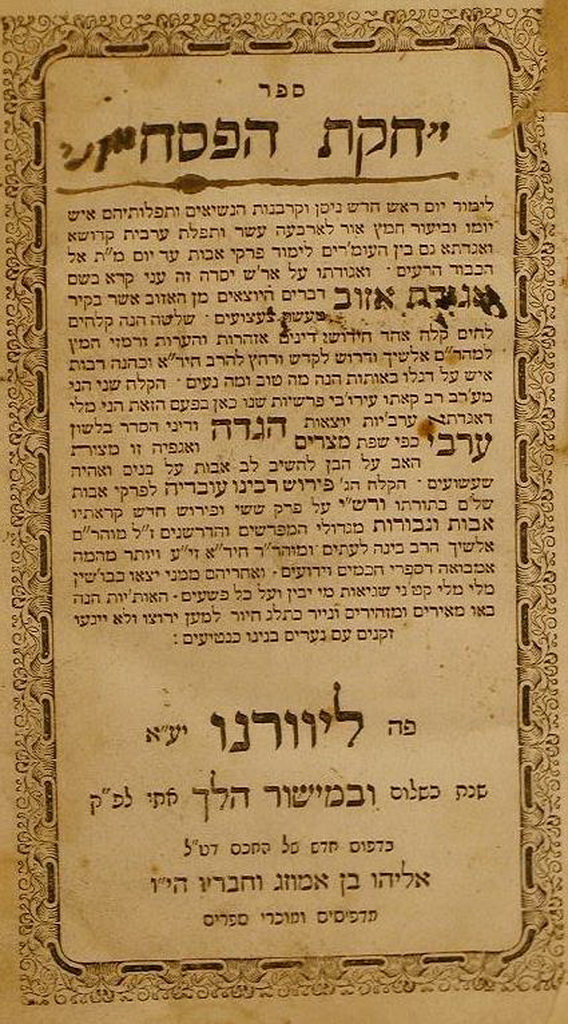 ספר
חקת הפסח
לימוד יום ראש חדש ניסן וקרבנות הנשיאים ותפלותיהם איש
יומו וביעור חמץ אור לארבעה עשר ותפלת ערבית קדושא
ואגדתא גם בין העומ'רים לימוד פרקי אבות עד יום מ"ת אל
הכבוד הרעים · ואגודתו על אר"ש יסדה זה עני קרא בשם
אגודת אזוב דברים היוצאים מן האזוב אשר בקיר
מעשה צעצועים · שלשה הנה קלחים
לחים קלח אחד חידושי דינים אזהרות והערות ורמזי המין
למהר"ם אלשיך ודרוש לקדש ורחץ להרב חיד"א וכהנה רבות
איש על דגלו באותות הנה מה טוב ומה נעים · הקלח שני הני
מערב רב קאתו עירו'בי פרשיות שנו כאן בפעם הזאת הני מלי
דאגדתא ערב'יות יוצאות הגדה ודיני הסדר בלשון
ערבי כפי שפת מצרים ואגפיה זו מצורת
האב על הבן להשיב לב אבות על בנים ואהיה
שעשועים · הקלח הג' פירוש רבינו עובדיה לפרקי אבות
שלים בתורתו ורש"י על פרק ששי ופירוש חדש קראתיו
אבות וגבורות מגדולי המפרשים והדרשנים ז"ל מוהר"ם
אלשיך הרב בינה לעתים ומוהר"ר חיד"א זי"ע ויותר מהמה
אמבואה דספרי חכמים וידועים · ואחריהם ממני יצאו כבו'שין
מלי מלי קט'ני שגיאות מי יבין ועל כל פשעים · האות'יות הנה
באו מאירים ומזהירים ונייר כתלג חיור למען ירוצו ולא ייגעו
זקנים עם נערים בנינו כנטיעים :
פה ליוורנו יע"א
שנת בשלום ובמישור הלך אתי לפ"ק
בדפוס חדש של החכם דט"ל
אליהו בן אמוזג וחבריו הי"ו
מדפיסים ומוכרי ספרים